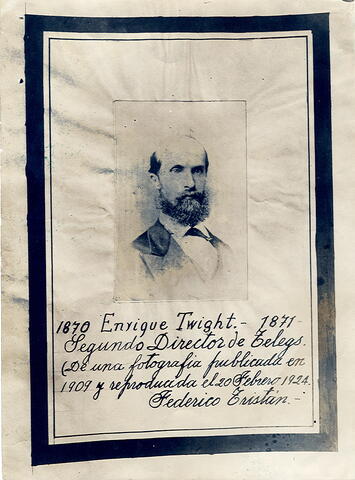 1870 Enrique Twight.- 1871-
Segundo Director de Telegs.
(De una fotografía publicada en
1909 y reproducida el 20 Febrero 1924.
Federico Tristán.-